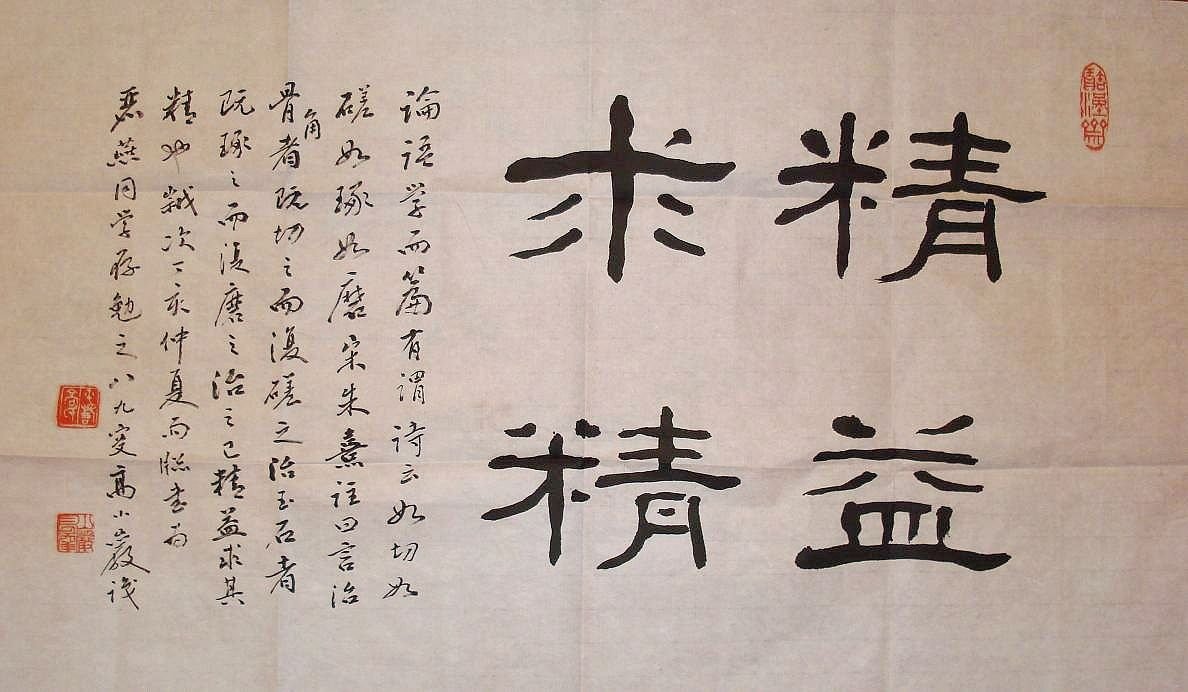 精益
求精
論語学而篇有謂詩云如切如
磋如琢如磨宋朱熹註曰言治
骨角者既切之而復磋之治玉石者
既琢之而復磨之治之已精益求其
精也歲次丁亥仲夏雨牕書为
燕同学存勉之八九叟高小巖